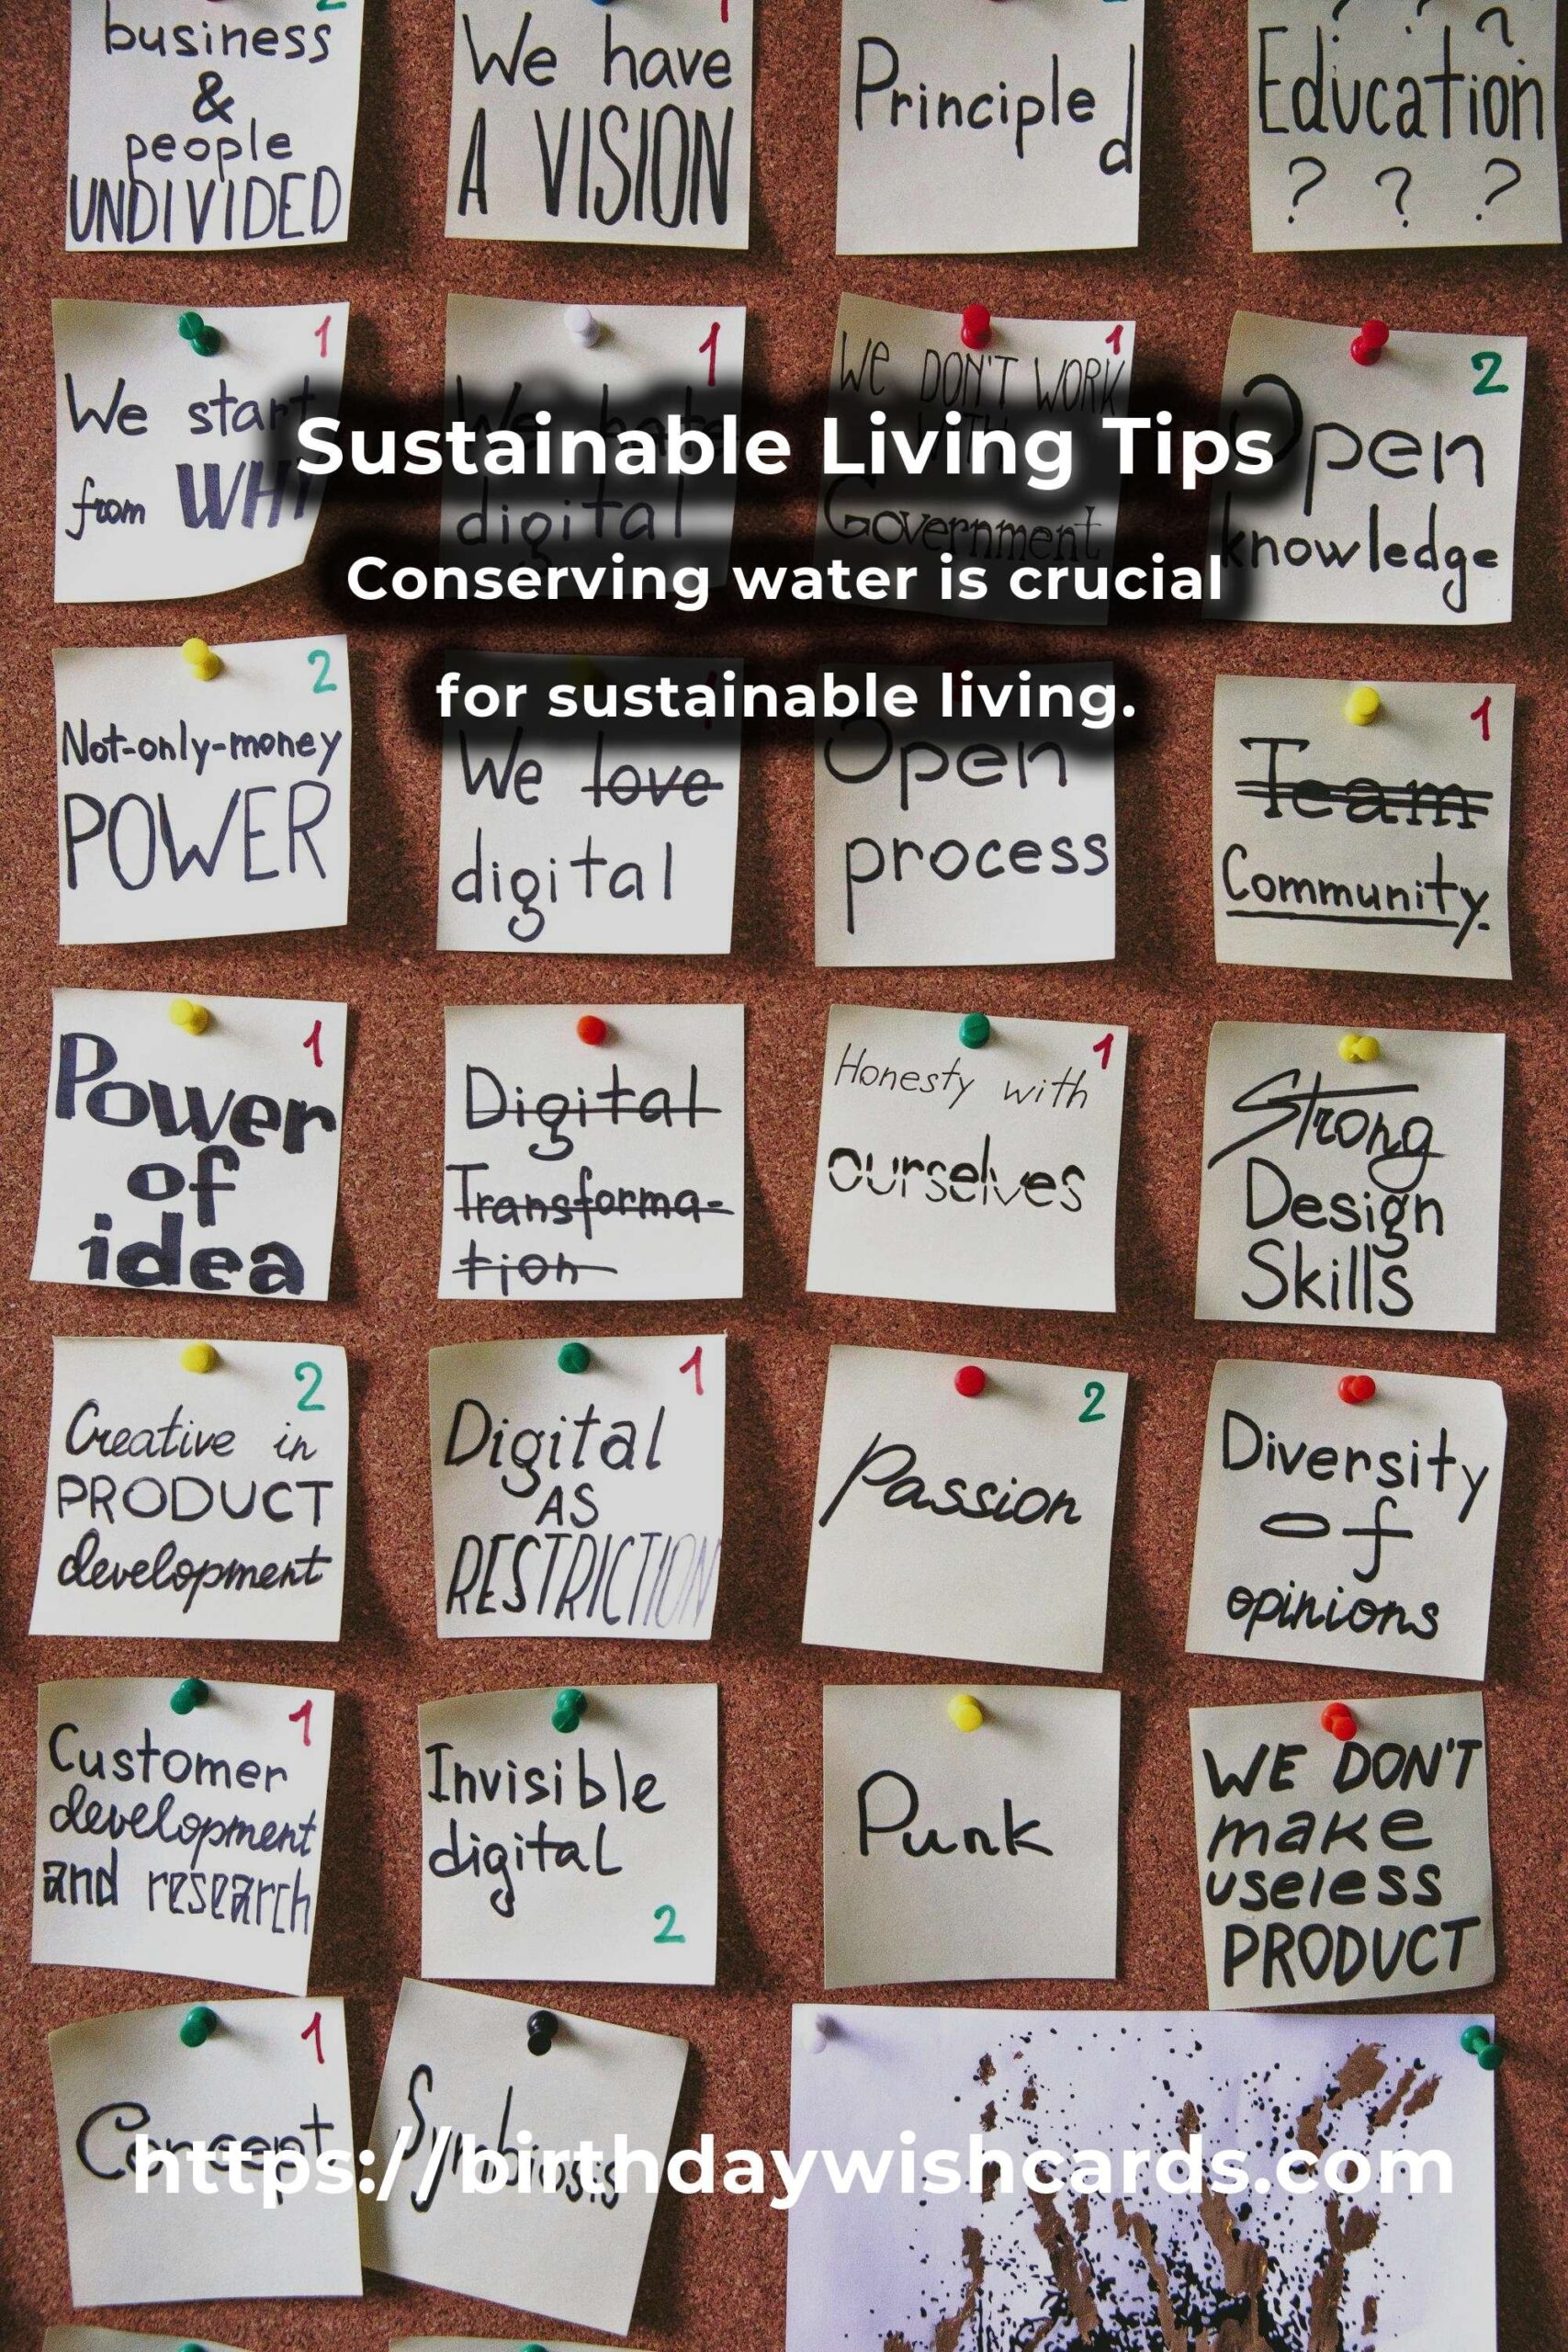 business
&
people
UNDIVIDED
We have
A VISION
Principled
Education
? ? ?
1
We start
from WHY
1
We hate
digital
1
We DON'T WORK
WITH
Government
2
Open
knowledge
Sustainable Living Tips
Conserving water is crucial
for sustainable living.
2
Not-only-money
POWER
We love
digital
Open
process
1
Team
Community.
1
Power
of
idea
Digital
Transforma-
tion
1
Honesty with
ourselves
Strong
Design
Skills
2
Creative in
PRODUCT
development
1
Digital
AS
RESTRICTION
2
Passion
Diversity
of
opinions
1
Customer
development
and research
Invisible
digital
2
Punk
WE DON'T
make
useless
PRODUCT
1
Concept
Symbiosis
https://birthdaywishcards.com